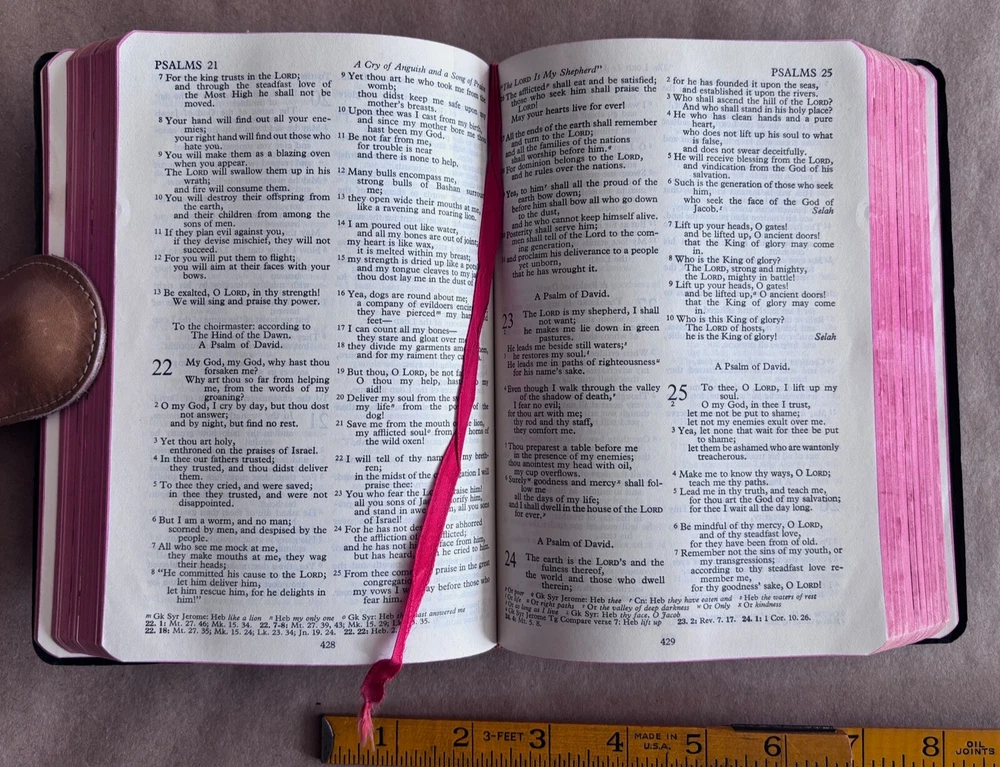 PSALMS 21
A Cry of Anguish and a Song of
7 For the king trusts in the LORD;
and through the steadfast love of
the Most High he shall not be
moved.
8 Your hand will find out all your ene-
mies;
your right hand will find out those who
hate you.
9 You will make them as a blazing oven
when you appear.
The LORD will swallow them up in his
wrath;
and fire will consume them.
10 You will destroy their offspring from
the earth,
and their children from among the
sons of men.
11 If they plan evil against you,
if they devise mischief, they will not
succeed.
12 For you will put them to flight;
you will aim at their faces with your
bows.
13 Be exalted, O LORD, in thy strength!
We will sing and praise thy power.
To the choirmaster: according to
The Hind of the Dawn.
A Psalm of David.
22 My God, my God, why hast thou
forsaken me?
Why art thou so far from helping
me, from the words of my
groaning?
2 O my God, I cry by day, but thou dost
not answer;
and by night, but find no rest.
3 Yet thou art holy,
enthroned on the praises of Israel.
4 In thee our fathers trusted;
they trusted, and thou didst deliver
them.
5 To thee they cried, and were saved;
in thee they trusted, and were not
disappointed.
6 But I am a worm, and no man;
scorned by men, and despised by the
people.
7 All who see me mock at me,
they make mouths at me, they wag
their heads;
8 "He committed his cause to the LORD;
let him deliver him,
let him rescue him, for he delights in
him!"
9 Yet thou art he who took me from the
womb;
thou didst keep me safe upon my
mother's breasts.
10 Upon thee was I cast from my birth,
and since my mother bore me
hast been my God.
11 Be not far from me,
for trouble is near
and there is none to help.
12 Many bulls encompass me,
strong bulls of Bashan
me;
13 they open wide their mouths at me,
like a ravening and roaring lion.
14 I am poured out like water,
and all my bones are out of joint;
my heart is like wax,
it is melted within my breast;
15 my strength is dried up like a
and my tongue cleaves to my
thou dost lay me in the dust of
16 Yea, dogs are round about me;
a company of evildoers
they have pierced m my
feet—
17 I can count all my bones—
they stare and gloat over
18 they divide my garments
and for my raiment they
19 But thou, O LORD, be not
O thou my help, my
aid!
20 Deliver my soul from the
my life n from the of the
dog!
21 Save me from the mouth lion,
my afflicted soul o from horns of
the wild oxen!
22 I will tell of thy breth-
ren;
in the midst of the I will
praise thee:
23 You who fear the praise him!
all you sons of him,
and stand in all you sons
of Israel!
24 For he has not or abhorred
the affliction of
and he has not face from him,
but has he cried to him.
25 From thee my praise in the great
my vows I before those who
fear him.
m Gk Syr Jerome: Heb like a lion n Heb my only one o Gk Syr: Heb answered me
22. 1: Mt. 27. 46; Mk. 15. 34. 22. 7-8: Mt. 27. 39, 43; Mk. 15. 29; 35.
22. 18: Mt. 27. 35; Mk. 15. 24; Lk. 23. 34; Jn. 19. 24. 22. 22: Heb. 2.
428
"The LORD Is My Shepherd"
PSALMS 25
The afflicted shall eat and be satisfied;
those who seek him shall praise the
LORD!
May your hearts live for ever!
All the ends of the earth shall remember
and turn to the LORD;
and all the families of the nations
shall worship before him.
For dominion belongs to the LORD,
and he rules over the nations.
Yea, to him shall all the proud of the
earth bow down;
before him shall bow all who go down
to the dust,
and he who cannot keep himself alive.
Posterity shall serve him;
men shall tell of the Lord to the com-
ing generation,
and proclaim his deliverance to a people
yet unborn,
that he has wrought it.
A Psalm of David.
23 The LORD is my shepherd, I shall
not want;
2 he makes me lie down in green
pastures.
He leads me beside still waters;
he restores my soul.
He leads me in paths of righteousness
for his name's sake.
4 Even though I walk through the valley
of the shadow of death,
I fear no evil;
for thou art with me;
thy rod and thy staff,
they comfort me.
Thou preparest a table before me
in the presence of my enemies;
thou anointest my head with oil,
my cup overflows.
Surely goodness and mercy shall fol-
low me
all the days of my life;
and I shall dwell in the house of the LORD
for ever.
A Psalm of David.
24 The earth is the LORD's and the
fulness thereof,
the world and those who dwell
therein;
2 for he has founded it upon the seas,
and established it upon the rivers.
3 Who shall ascend the hill of the LORD?
And who shall stand in his holy place?
4 He who has clean hands and a pure
heart,
who does not lift up his soul to what
is false,
and does not swear deceitfully.
5 He will receive blessing from the LORD,
and vindication from the God of his
salvation.
6 Such is the generation of those who seek
him,
who seek the face of the God of
Jacob. z Selah
7 Lift up your heads, O gates!
and be lifted up, O ancient doors!
that the King of glory may come
in.
8 Who is the King of glory?
The LORD, strong and mighty,
the LORD, mighty in battle!
9 Lift up your heads, O gates!
and be lifted up, a O ancient doors!
that the King of glory may come
in.
10 Who is this King of glory?
The LORD of hosts,
he is the King of glory! Selah
A Psalm of David.
25 To thee, O LORD, I lift up my
soul.
2 O my God, in thee I trust,
let me not be put to shame;
let not my enemies exult over me.
3 Yea, let none that wait for thee be put
to shame;
let them be ashamed who are wantonly
treacherous.
4 Make me to know thy ways, O LORD;
teach me thy paths.
5 Lead me in thy truth, and teach me,
for thou art the God of my salvation;
for thee I wait all the day long.
6 Be mindful of thy mercy, O LORD,
and of thy steadfast love,
for they have been from of old.
7 Remember not the sins of my youth, or
my transgressions;
according to thy steadfast love re-
member me,
for thy goodness' sake, O LORD!
Gk Syr Jerome: Heb thy r Cn: Heb they have eaten and s Heb the waters of rest
Or life u Or right paths v Or the valley of deep darkness w Or Only x Or kindness
Or as long as I live z Gk Syr: Heb thy face, O Jacob
Gk Syr Jerome Tg Compare verse 7: Heb lift up
23. 2: Rev. 7. 17. 24. 1: 1 Cor. 10. 26.
24. 4: Mt. 5. 8.
429
1 2 3-FEET 3 4 MADE IN U.S.A. 5 6 7 8 OIL JOINTS